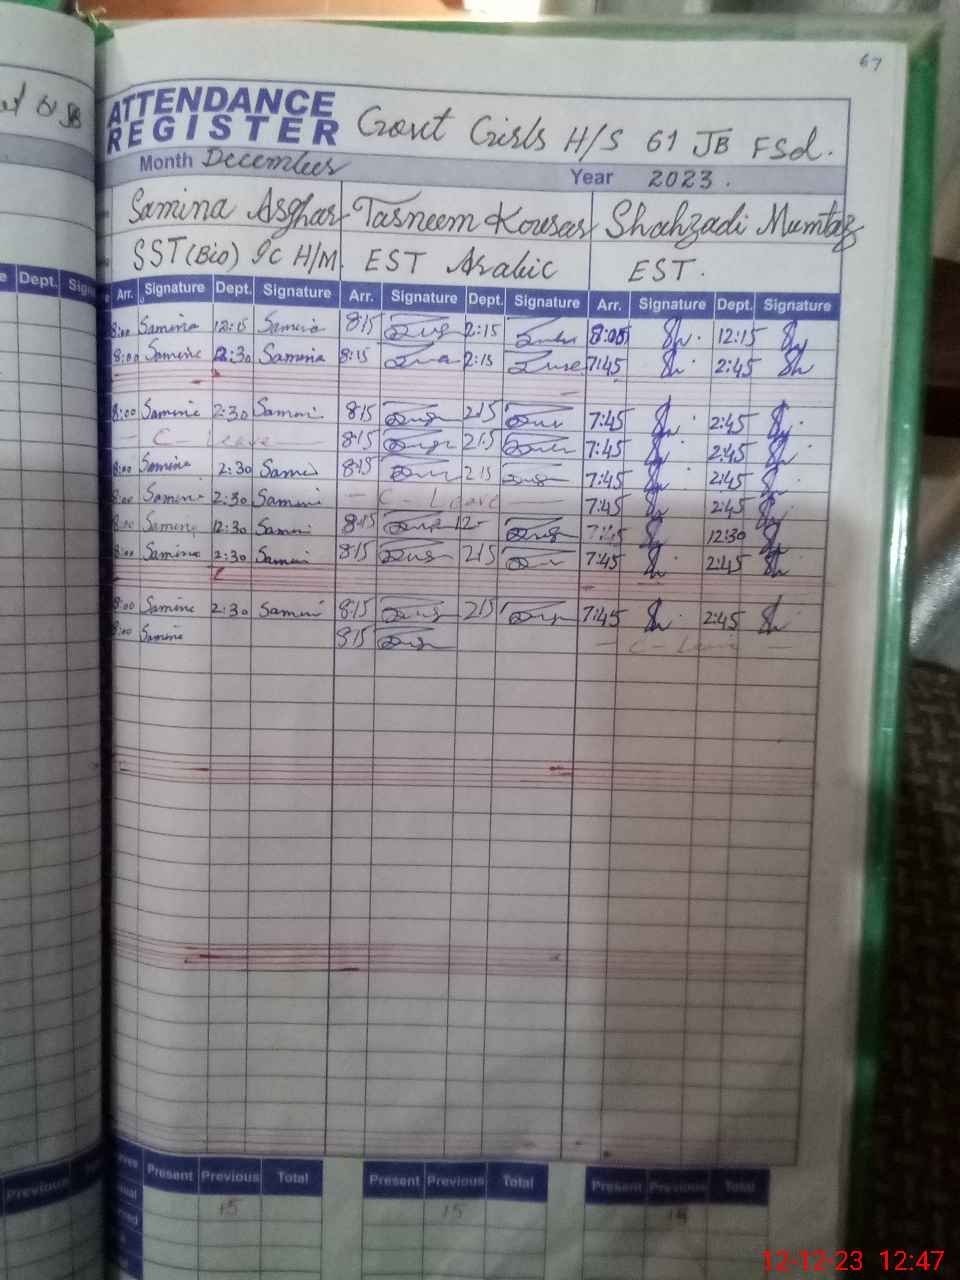 67
ATTENDANCE
REGISTER Govt Girls H/S 61 JB FSd.
Month December Year 2023.
Samina Asghar Tasneem Kousar Shahzadi Mumtaz
SST (Bio) Ic H/M EST Arabic EST.
Dept. Arr. Signature Dept. Signature Arr. Signature Dept. Signature Arr. Signature Dept. Signature
8:00 Samina 12:15 Samina 8:15 2:15 8:00 12:15
8:00 Samina 2:30 Samina 8:15 2:15 7:45 2:45
8:00 Samina 2:30 Samina 8:15 215 7:45 2:45
- C - Leave - 8:15 215 7:45 2:45
8:00 Samina 2:30 Samina 8:15 215 7:45 2:45
8:00 Samina 2:30 Samina - C - Leave - 7:45 2:45
8:00 Samina 12:30 Samina 8:15 12- 7:45 12:30
8:00 Samina 2:30 Samina 8:15 215 7:45 2:45
8:00 Samina 2:30 Samina 8:15 215 7:45 2:45
8:00 Samina 8:15 - C - Leave -
Previous Present Previous Total Present Previous Total Present Previous Total
15 15
12-12-23 12:47